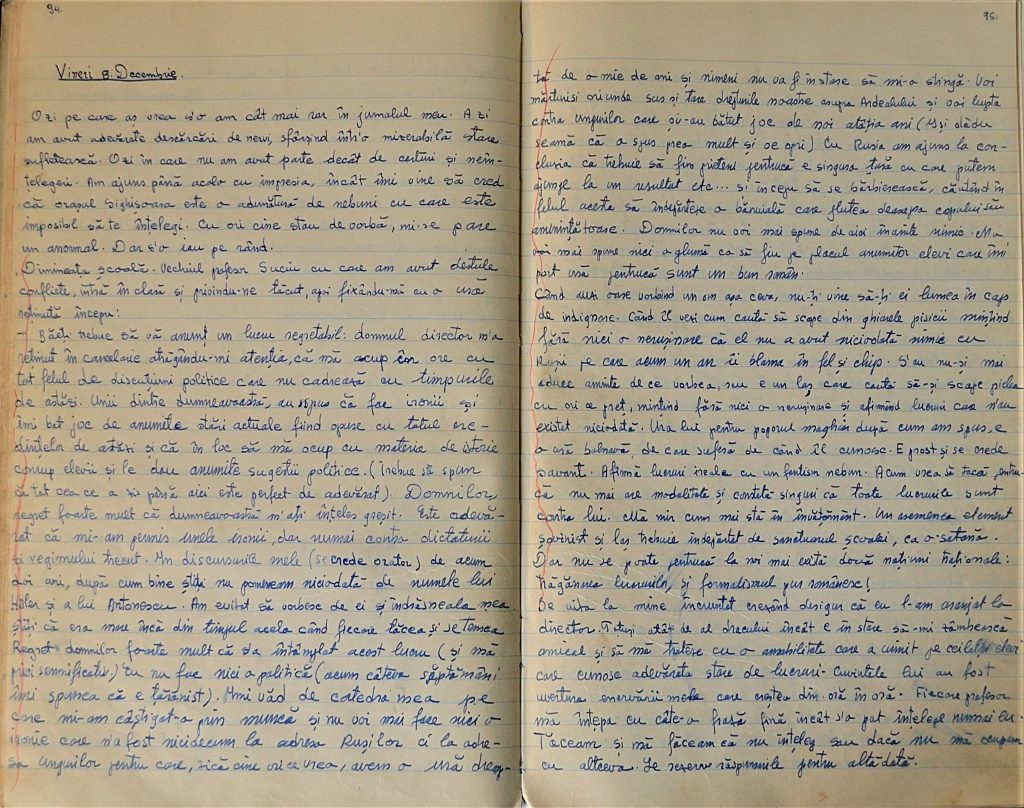 94.
Vineri 8. Decembrie.
O zi pe care aș vrea s'o am cât mai rar în jurnalul meu. Azi
am avut adevărate descărcări de nervi, sfârșind într'o mizerabilă stare
sufletească. O zi în care nu am avut parte decât de certuri și neîn-
țelegeri. Am ajuns până acolo cu impresia, încât îmi vine să cred
că orașul Sighișoara este o adunătură de nebuni cu care este
imposibil să te înțelegi. Cu ori cine stau de vorbă, mi-se pare
un anormal. Dar s'o iau pe rând.
Dimineața școală. Vechiul profesor Suciu cu care am avut destule
conflicte, intră în clasă și privindu-ne tăcut, apoi fixându-mă cu o ură
reținută începu:
- Băeți trebue să vă anunț un lucru regretabil: domnul director m'a
reținut în cancelarie atrăgându-mi atenția, că mă ocup în ore cu
tot felul de discuțiuni politice care nu cadrează cu timpurile
de astăzi. Unii dintre dumneavoastră, au spus că fac ironii și
îmi bat joc de anumite stări actuale fiind opuse cu totul cre-
dințelor de astăzi și că în loc să mă ocup cu materia de istorie
corup elevii și le dau anumite sugestii politice. (Trebue să spun
că tot ceea ce a zis până aici este perfect de adevărat). Domnilor,
regret foarte mult că dumneavoastră m'ați înțeles greșit. Este adevă-
rat că mi-am permis unele ironii, dar numai contra dictaturii
și regimului trecut. În discursurile mele (se crede orator) de acum
doi ani, după cum bine știți nu pomeneam niciodată de numele lui
Hitler și a lui Antonescu. Am evitat să vorbesc de ei și îndrăsneala mea
știți că era mare încă din timpul acela când fiecare tăcea și se temea
Regret domnilor foarte mult că s'a întâmplat acest lucru (și mă
privi semnificativ) Eu nu fac nici o politică (acum câteva săptămâni
îmi spunea că e țărănist). Îmi văd de catedra mea pe
care mi-am câștigat-o prin muncă și nu voi mai face nici o
ironie care n'a fost nicidecum la adresa Rușilor ci la adre-
sa ungurilor pentru care, zică cine orice vrea, avem o ură dreap-
95.
tă de o mie de ani și nimeni nu va fi în stare să mi-o stingă. Voi
mărturisi ori unde sus și tare drepturile noastre asupra Ardealului și voi lupta
contra ungurilor care și-au bătut joc de noi atâția ani (Își dădu
seamă că a spus prea mult și se opri) Cu Rusia am ajuns la con-
cluzia că trebuie să fim prieteni pentrucă e singura țară cu care putem
ajunge la un rezultat etc... și începu să se bărbierească, căutând în
felul acesta să îndepărteze o bănuială care plutea deasupra capului său
amenințătoare. Domnilor nu voi mai spune de aici înainte nimic. Nu
voi mai spune nici o glumă ca să fiu pe placul anumitor elevi care îmi
port ură pentrucă sunt un bun român.
Când auzi oare vorbind un om așa ceva, nu-ți vine să-ți ei lumea în cap
de indignare. Când îl vezi cum caută să scape din ghiarele pisicii mințind
fără nici o nerușinare că el nu a avut niciodată nimic cu
Rușii pe care acum un an îi blama în fel și chip. S'au nu-și mai
aduce aminte de ce vorbea, sau e un laș care caută să-și scape pielea
cu ori ce preț, mințind fără nici o nerușinare și afirmând lucruri care n'au
existat niciodată. Ura lui pentru poporul maghiar după cum am spus, e
o ură bolnavă, de care sufere de când îl cunosc. E prost și se crede
savant. Afirmă lucruri ireale cu un fantism nebun. Acum vrea să tacă pentru
că nu mai are modalitate și constată singur că toate lucrurile sunt
contra lui. Mă mir cum mai stă în învățământ. Un asemenea element
șovinist și laș trebuie îndepărtat de sanctuarul școalei, ca o satană.
Dar nu se poate pentrucă la noi mai există două națiuni naționale:
Tărăgănarea lucrurilor, și formalismul pur românesc!
Se uita la mine încruntat crezând desigur că eu l-am aranjat la
director. Totuși atât de al dracului încât e în stare să-mi zâmbească
amical și să mă trateze cu o amabilitate care a uimit pe ceilalți elevi
care cunosc adevărata stare de lucruri. Cuvintele lui au fost
uvertura enervării mele care creștea din oră în oră. Fiecare profesor
mă înțepa cu câte-o frază fină încât s'o pot înțelege numai eu.
Tăceam și mă făceam că nu înțeleg sau dacă nu mă ocupam
cu altceva. Le rezerv răspunsurile pentru altă dată.